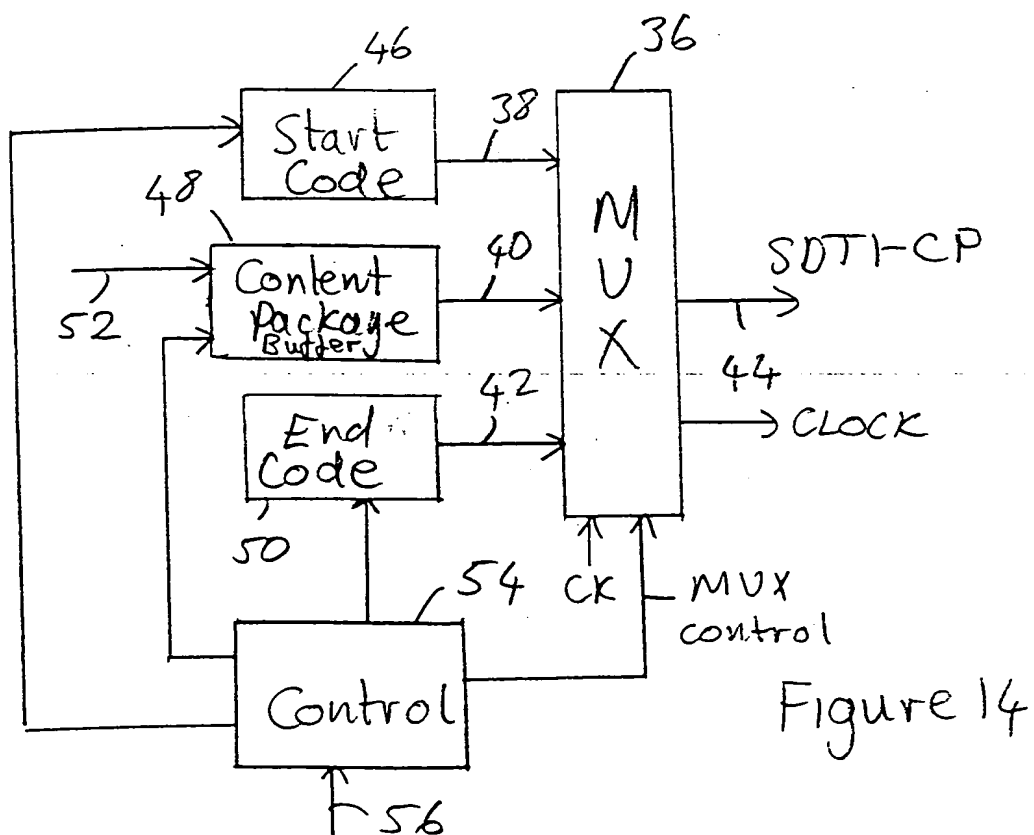 46
36
Start
Code
38
48
MUX
Content
Package
Buffer
40
SDTI-CP
52
44
42
End
Code
CLOCK
50
54
CK
MUX
control
Control
Figure 14
56